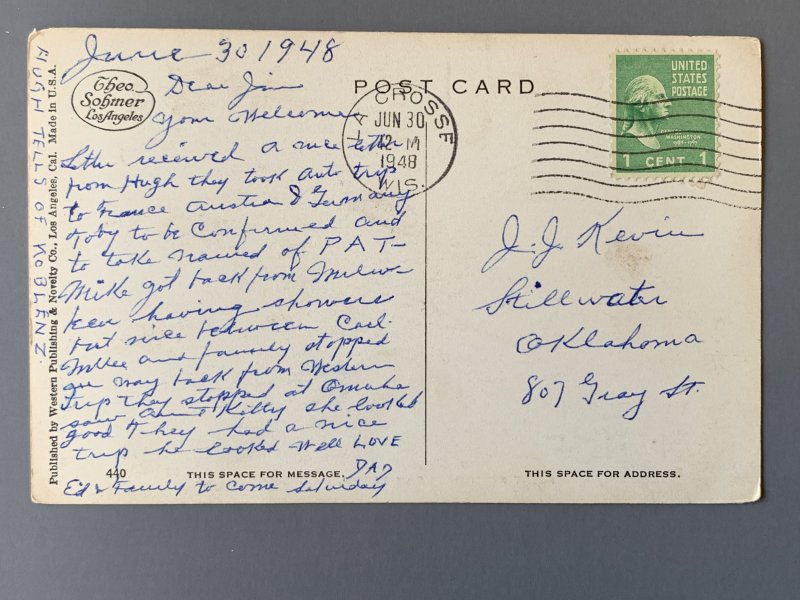 June 30 1948
Dear Jim
your Welcomer
Letter received a nice letter
from Hugh they took auto trip
to France Austria & Germany
toby to be Confirmed and
to take named of PAT-
Mike got back from Milw-
kee having showers
but nice between Carl
and family stopped
on way back from Western
trip they stopped at Omaha
saw Aunt Kitty she looked
good they had a nice
trip he looked well LOVE
DAD
Ed & Family to come Saturday
HUGH TELLS OF KOBLENZ.
Theo.
Sohmer
Los Angeles
Published by Western Publishing & Novelty Co., Los Angeles, Cal. Made in U.S.A.
440
THIS SPACE FOR MESSAGE.
POST CARD
LA CROSSE
JUN 30
12 - M
1948
WIS.
UNITED
STATES
POSTAGE
WASHINGTON
1 CENT 1
J. J. Kevin
Stillwater
Oklahoma
807 Gray St.
THIS SPACE FOR ADDRESS.